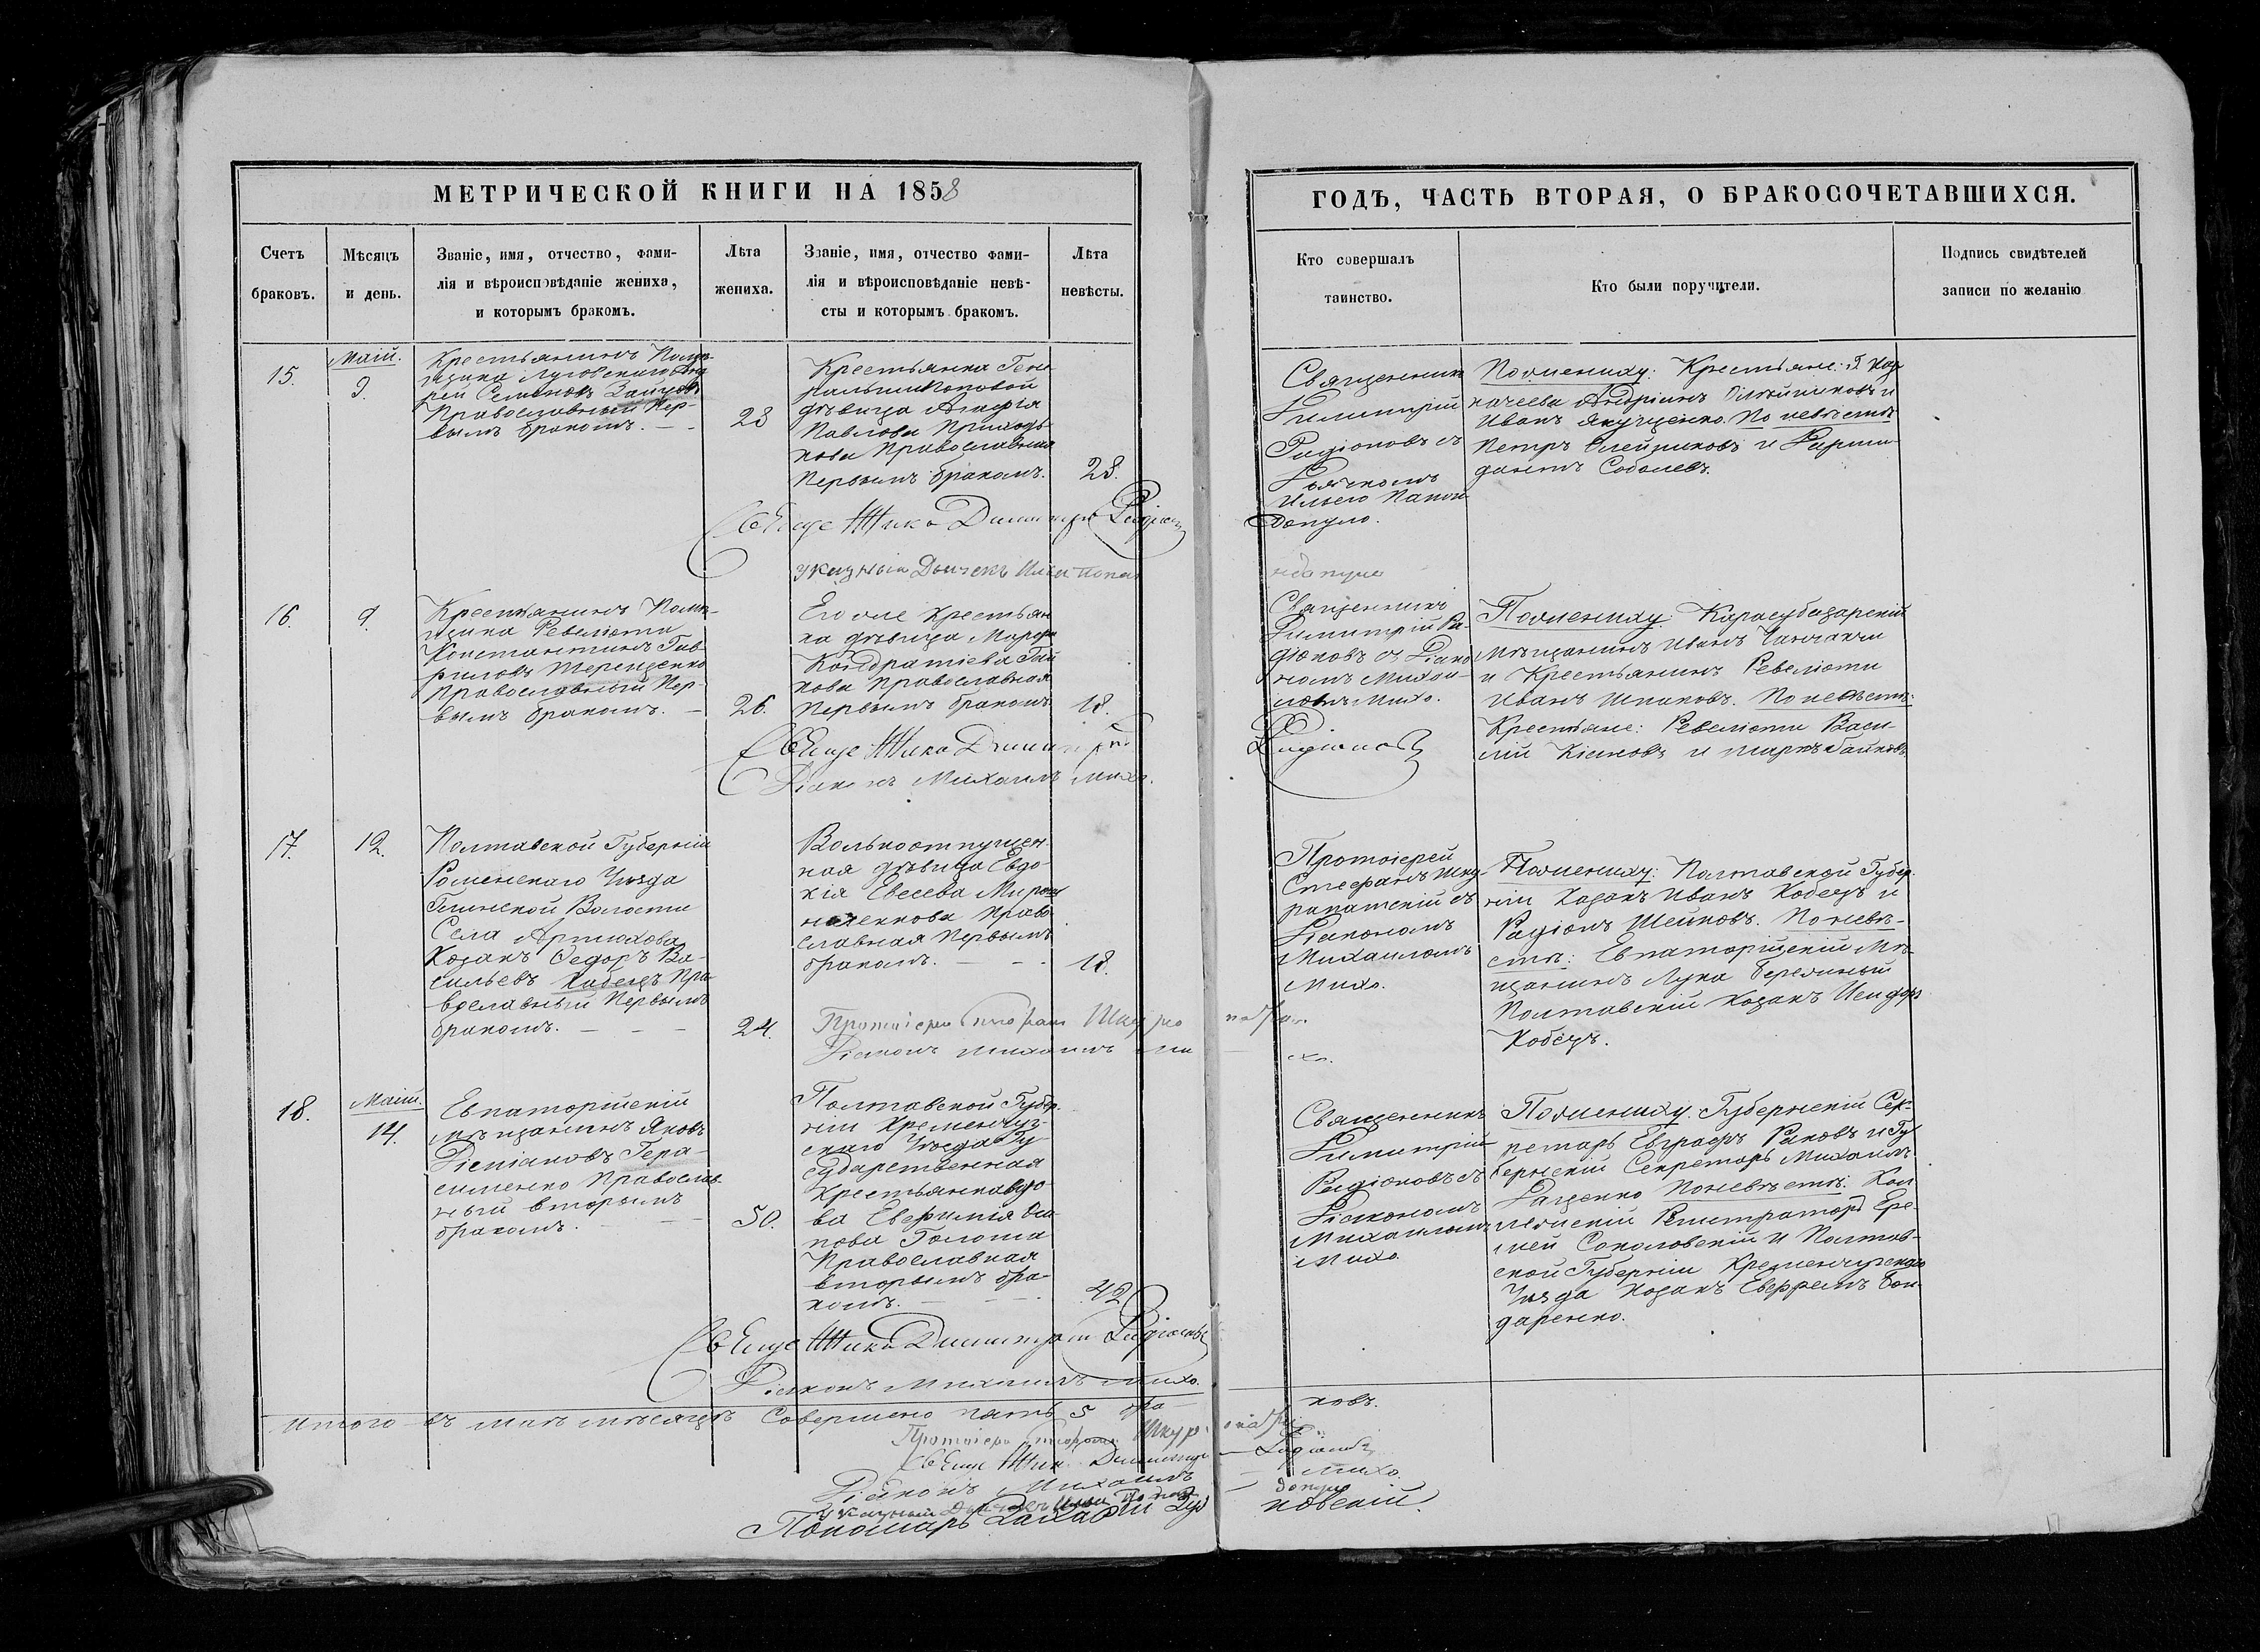 МЕТРИЧЕСКОЙ КНИГИ НА 1858
Счетъ браковъ.
Мѣсяцъ и день.
Званіе, имя, отчество, фами-
лія и вѣроисповѣданіе жениха,
и которымъ бракомъ.
Лѣта жениха.
Званіе, имя, отчество фами-
лія и вѣроисповѣданіе невѣ-
сты и которымъ бракомъ.
Лѣта невѣсты.
15.
Маій.
9.
Крестьянинъ Помѣ-
щика Луговскаго Анд
рей Семеновъ Зайцовъ
Православный Пер-
вымъ бракомъ. -
28
Крестьянка Гене
ральши Поповой
дѣвица Агафія
Павлова
Православная
Первымъ бракомъ.
28.
Священникъ Димитрій
указный Дьячекъ Илья Папа
16.
9.
Крестьянинъ Помѣ-
щика Ревеліоти
Константинъ Гав-
риловъ Терещенко
Православный Пер-
вымъ бракомъ. -
26.
Его же Крестьян
ка дѣвица Марфа
Кондратіева
Православная
Первымъ бракомъ
18.
Священникъ Димитрій
Діаконъ Михаилъ Михо.
17.
12.
Полтавской Губерніи
Роменскаго Уѣзда
Глинской Волости
Села Артюхова
Козакъ Ѳедоръ Ва-
сильевъ Кобецъ Пра-
вославный Первымъ
бракомъ. - - -
24.
Вольноотпущен
ная дѣвица Евдо-
кія Евсеева
Право
славная Первымъ
бракомъ. - - -
18.
Протоіерей Стефанъ Шкуро
Діаконъ Михаилъ Ми
18.
Маій.
14.
Евпаторійскій
мѣщанинъ Яковъ
Гера-
сименко Православ
ный вторымъ
бракомъ. - -
50.
Полтавской Губер-
ніи Кременчуг-
скаго Уѣзда Го-
сударственная
Крестьянка вдо-
ва Евфимія Оси
пова Голота
Православная
вторымъ бра-
комъ. - - -
42
Священникъ Димитрій Радіоновъ
Діаконъ Михаилъ Михо.
Итого въ маѣ мѣсяцѣ Совершено пять 5 бра-
Протоіерей Стефанъ Шкур
Священникъ Димитрій
Діаконъ Михаилъ
указный Дьячекъ Илья Папа
Пономарь Захарій
ГОДЪ, ЧАСТЬ ВТОРАЯ, О БРАКОСОЧЕТАВШИХСЯ.
Кто совершалъ
таинство.
Кто были поручители.
Подпись свидѣтелей
записи по желанію
Священникъ
Димитрій
Радіоновъ съ
Дьячкомъ
Ильею Папан
допуло.
По женихѣ: Крестьяне:
Андріанъ Олейниковъ и
Иванъ Якущенко. По невѣстѣ
Петръ Олейниковъ и
Соболевъ.
ндопуло
Священникъ
Димитрій Ра-
діоновъ съ Діако
номъ Михаи-
ломъ Михо.
Радіоновъ
По женихѣ: Карасубазарскій
мѣщанинъ Иванъ
и Крестьянинъ Ревеліоти
Иванъ Шпаковъ. По невѣстѣ:
Крестьяне: Ревеліоти Васи-
лій и
Протоіерей
Стефанъ Шку-
ропатскій съ
Діакономъ
Михаиломъ
Михо.
По женихѣ: Полтавской Губер-
ніи Козакъ Иванъ Кобецъ и
Радіонъ Шейковъ. По невѣ-
стѣ: Евпаторійскій Мѣ-
щанинъ Лука Бережный
Полтавскій Козакъ Исидоръ
Кобецъ.
хо.
Священникъ
Димитрій
Радіоновъ съ
Діакономъ
Михаиломъ
Михо.
По женихѣ: Губернскій Сек-
ретарь Евграфъ Раковъ и Гу
бернскій Секретарь Михаилъ
По невѣстѣ: Кол
лежскій Регистраторъ Ере-
мей Соколовскій и Полтав-
ской Губерніи Кременчугскаго
Уѣзда Козакъ Евфремъ Бон
даренко.
ковъ.
Радіоновъ
Михо.
допуло
новскій.